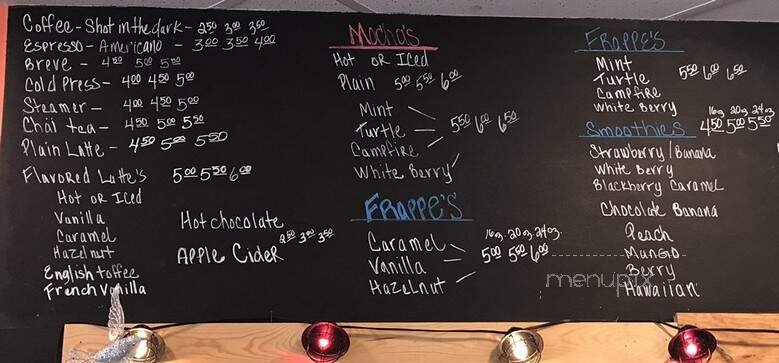 Coffee - Shot in the dark - 2.50 3.00 3.50
Espresso - Americano - 3.00 3.50 4.00
Breve - 4.50 5.00 5.50
Cold Press - 4.00 4.50 5.00
Steamer - 4.00 4.50 5.00
Chai tea - 4.50 5.00 5.50
Plain Latte - 4.50 5.00 5.50
Flavored Latte's 5.00 5.50 6.00
Hot or Iced
Vanilla
Caramel
Hazelnut
English toffee
French Vanilla
Hot chocolate
Apple Cider 2.50 3.00 3.50
Mocha's
Hot or Iced
Plain 5.00 5.50 6.00
Mint
Turtle 5.50 6.00 6.50
Campfire
White Berry
Frappe's
16oz. 20oz. 24oz.
Caramel
Vanilla 5.00 5.50 6.00
Hazelnut
Frappe's
Mint
Turtle 5.50 6.00 6.50
Campfire
White Berry
16oz 20oz 24oz
Smoothies 4.50 5.00 5.50
Strawberry/Banana
White Berry
Blackberry Caramel
Chocolate Banana
Peach
Mango
Berry
Hawaiian
menupix